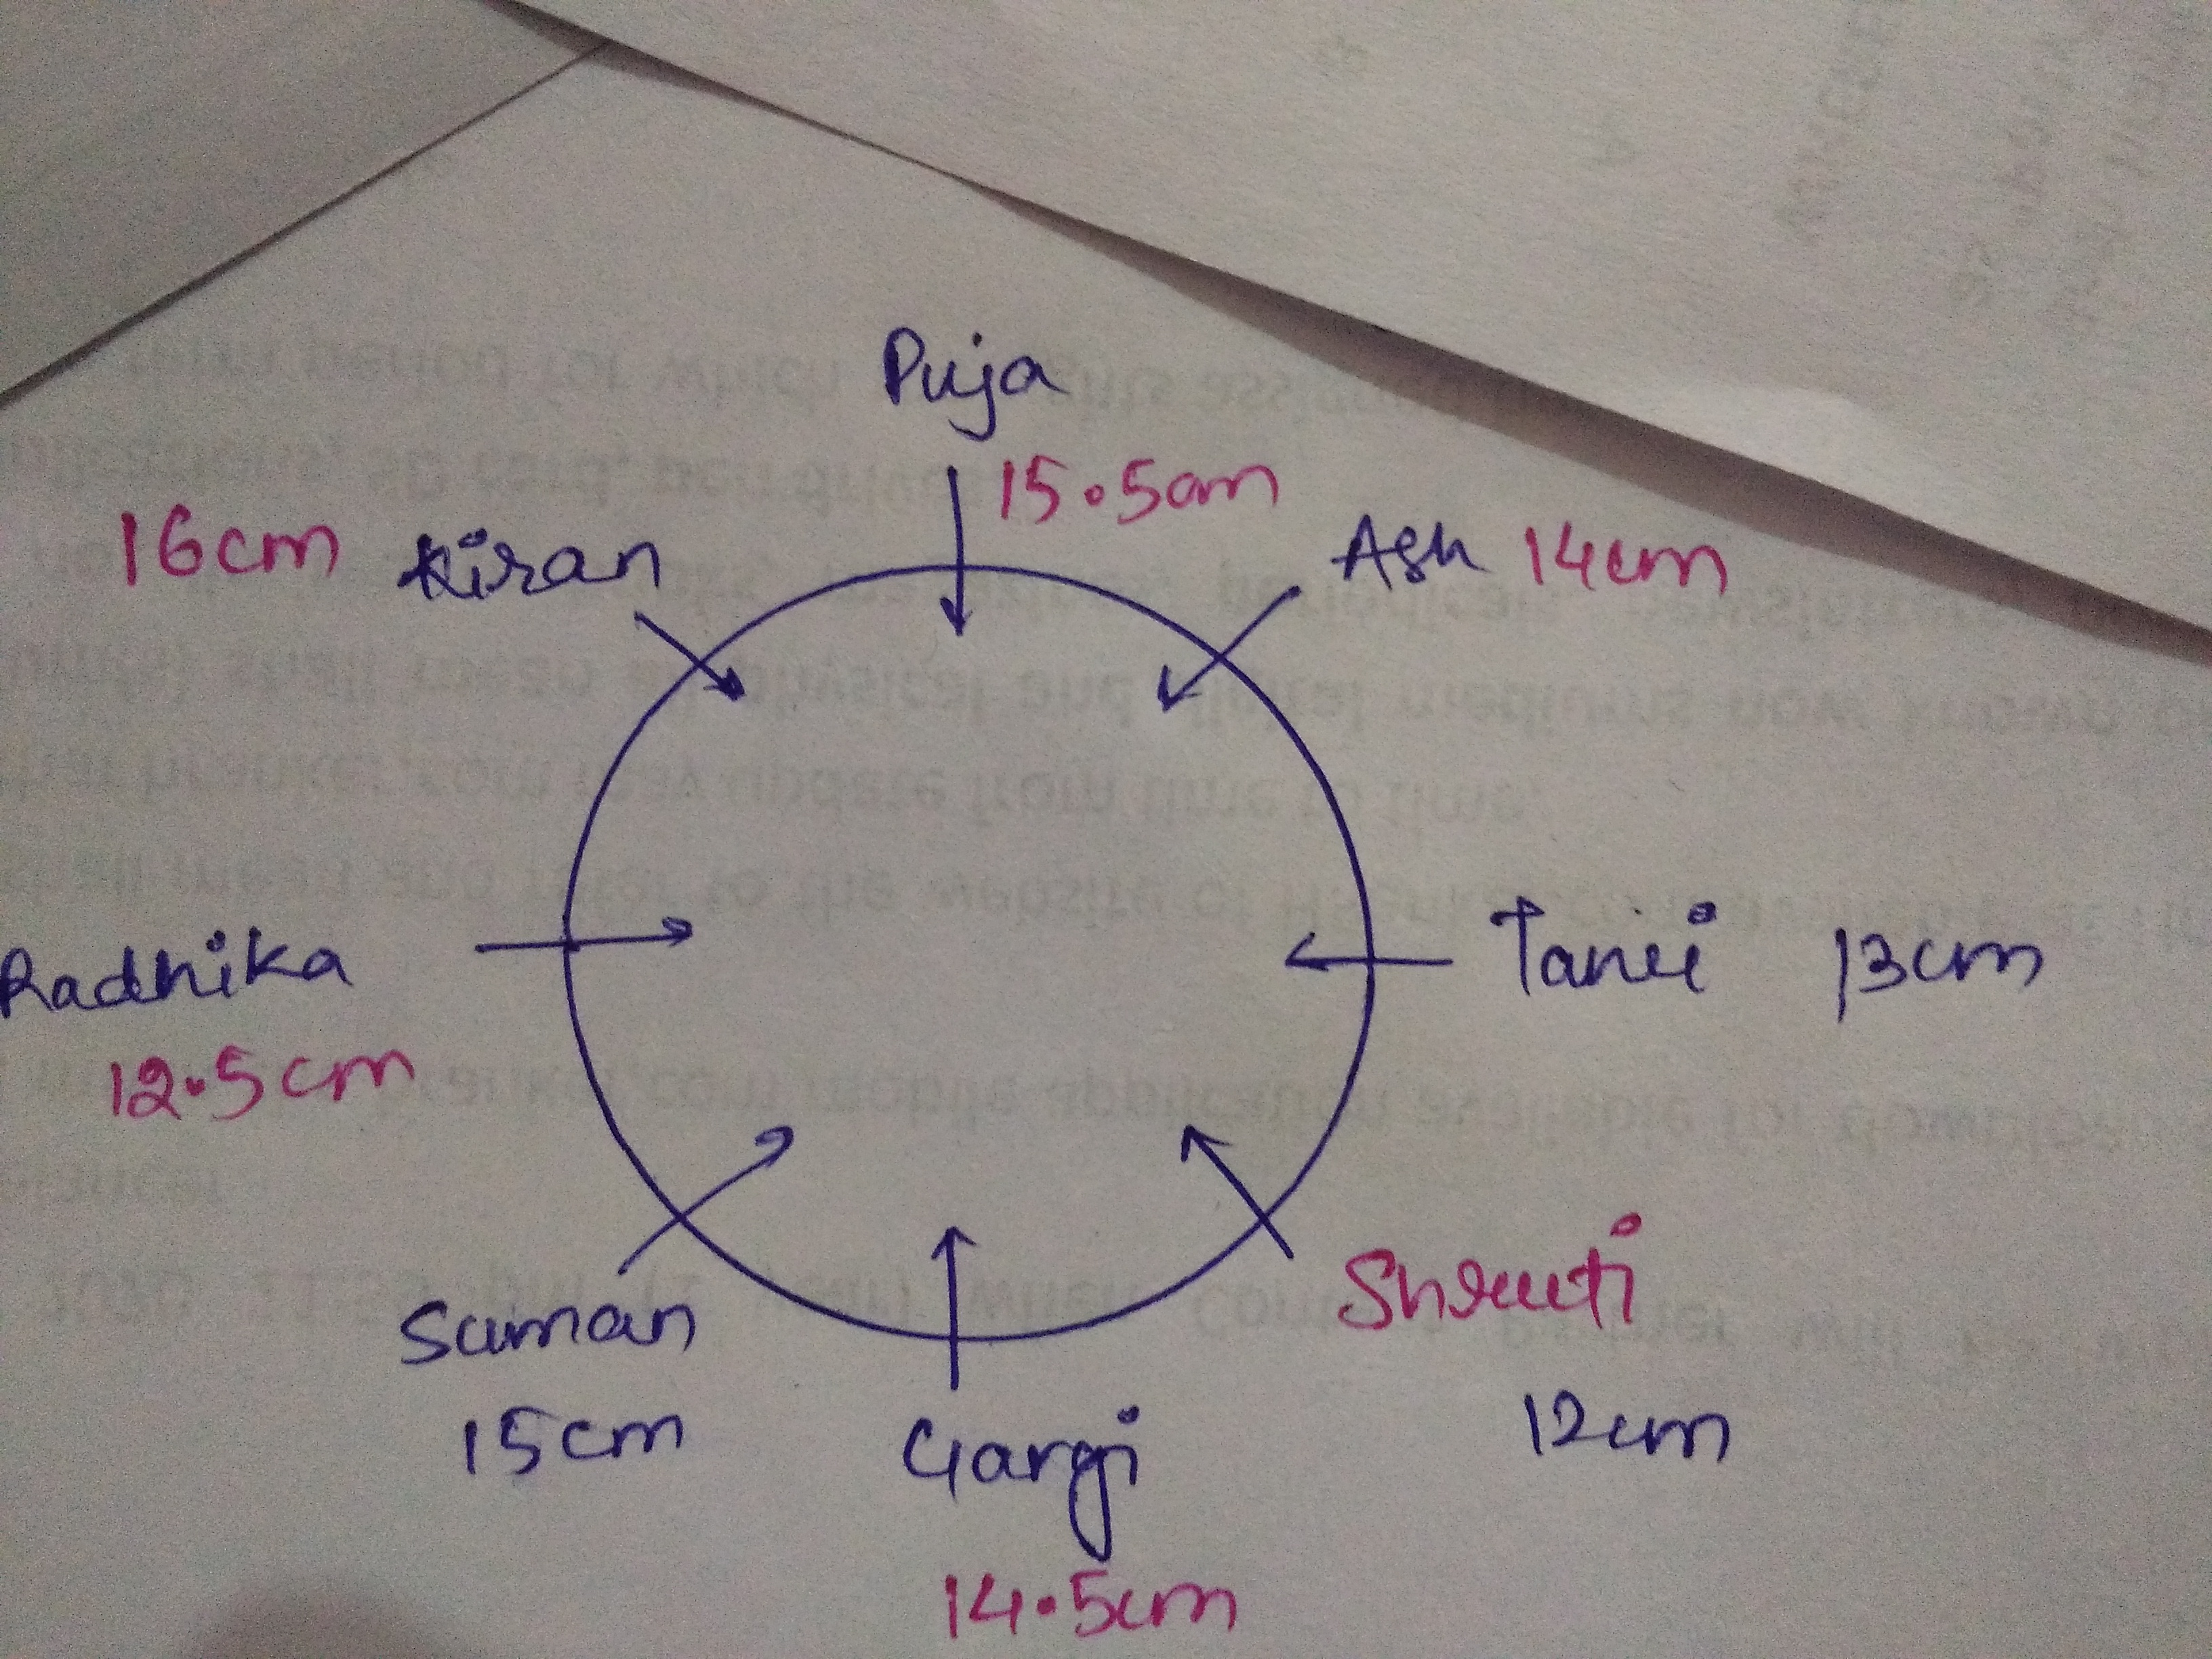 Puja
15.5cm
16cm Kiran
Ash 14cm
Radhika
12.5cm
Tanvi 13cm
Suman
15cm
Gargi
14.5cm
Shruti
12cm